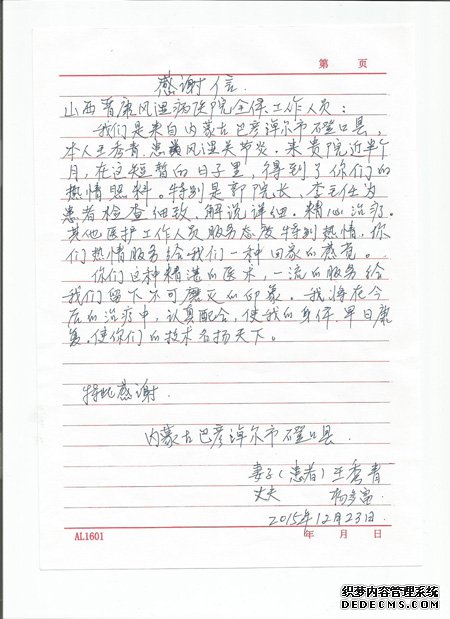 第 页
感谢信
山西晋康风湿病医院全体工作人员:
我们是来自内蒙古巴彦淖尔市磴口县,
本人王秀青,患风湿关节炎。来贵院近半个
月,在这短暂的日子里,得到了你们的
热情照料。特别是郭院长、李主任为
患者检查细致,解说详细,精心治疗。
其他医护工作人员服务态度特别热情,你
们热情服务给我们一种回家的感觉。
你们这种精湛的医术,一流的服务给
我们留下不可磨灭的印象。我将在今
后的治疗中,认真配合,使我的身体早日康
复,使你们的技术名扬天下。
特此感谢
内蒙古巴彦淖尔市磴口县
妻子(患者)王秀青
丈夫 杨富
2015年12月23日
AL1601 年 月 日
织梦内容管理系统
DEDECMS.COM